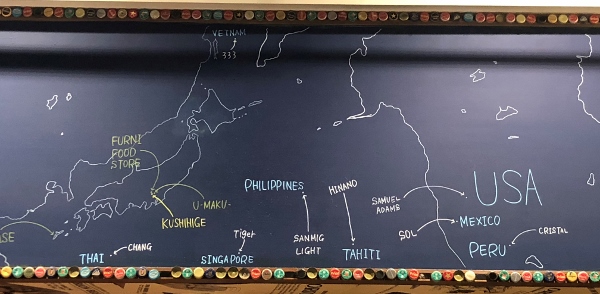 VIETNAM
333
FURNI
FOOD
STORE
U-MAKU-
KUSHIHIGE
PHILIPPINES
SANMIG
LIGHT
HINANO
TAHITI
SAMUEL
ADAMS
USA
SOL
MEXICO
PERU
CRISTAL
THAI
CHANG
Tiger
SINGAPORE